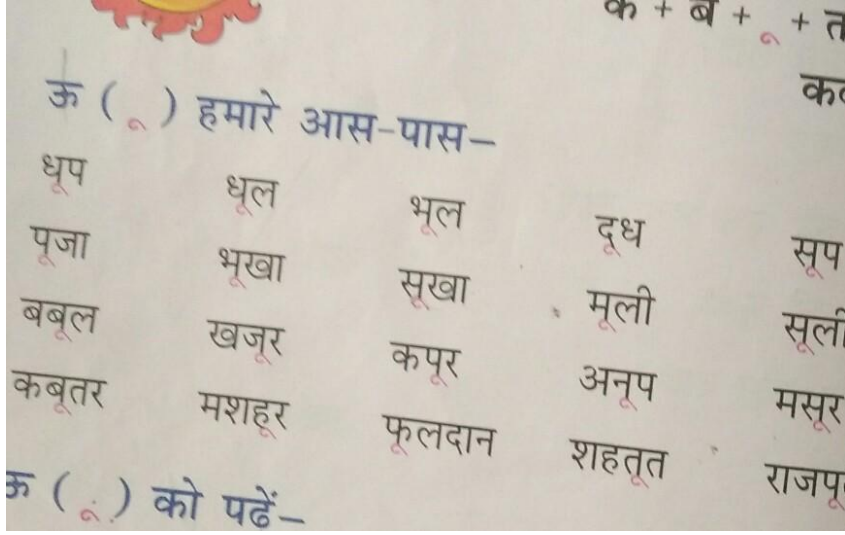 क + ब + ू + त
ऊ ( ू ) हमारे आस-पास–
धूप धूल भूल दूध सूप
पूजा भूखा सूखा मूली सूली
बबूल खजूर कपूर अनूप मसूर
कबूतर मशहूर फूलदान शहतूत
ऊ ( ू ) को पढें–